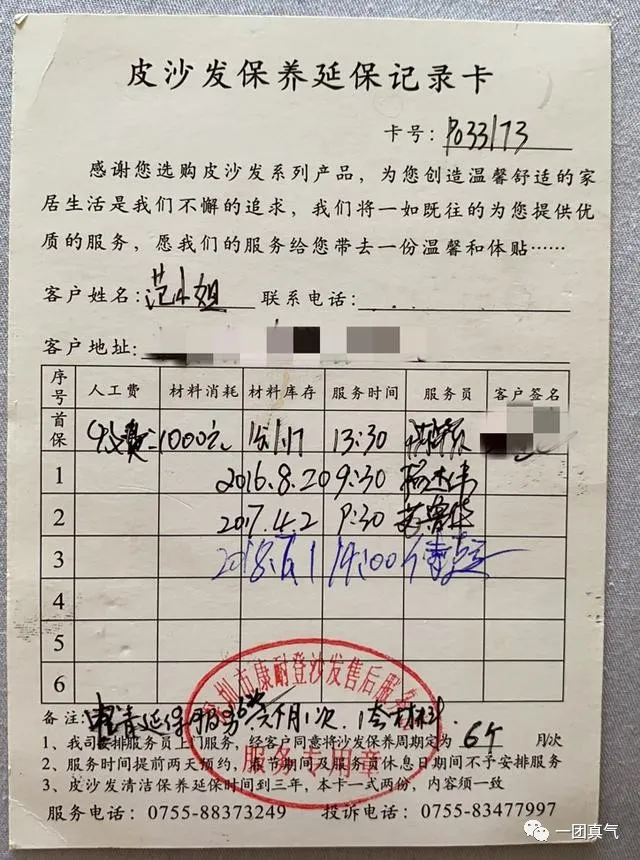 皮沙发保养延保记录卡
卡号：P033173
感谢您选购皮沙发系列产品，为您创造温馨舒适的家
居生活是我们不懈的追求，我们将一如既往的为您提供优
质的服务，愿我们的服务给您带去一份温馨和体贴……
客户姓名：范小姐 联系电话：
客户地址：
序号 人工费 材料消耗 材料库存 服务时间 服务员 客户签名
首保 收费：1000元 13:30
1 2016.8.20 9:30
2 2017.4.2 9:30
3 2018.6.1 14:00
4
5
6
深圳市康耐登沙发售后服务
服务专用章
备注：申请延保服务6次 六个月1次，1套材料.
1、我司安排服务员上门服务，经客户同意将沙发保养周期定为 6个 月/次
2、服务时间提前两天预约，假节期间及服务员休息日期间不予安排服务
3、皮沙发清洁保养延保时间到三年，本卡一式两份，内容须一致
服务电话：0755-88373249 投诉电话：0755-83477997
一团真气